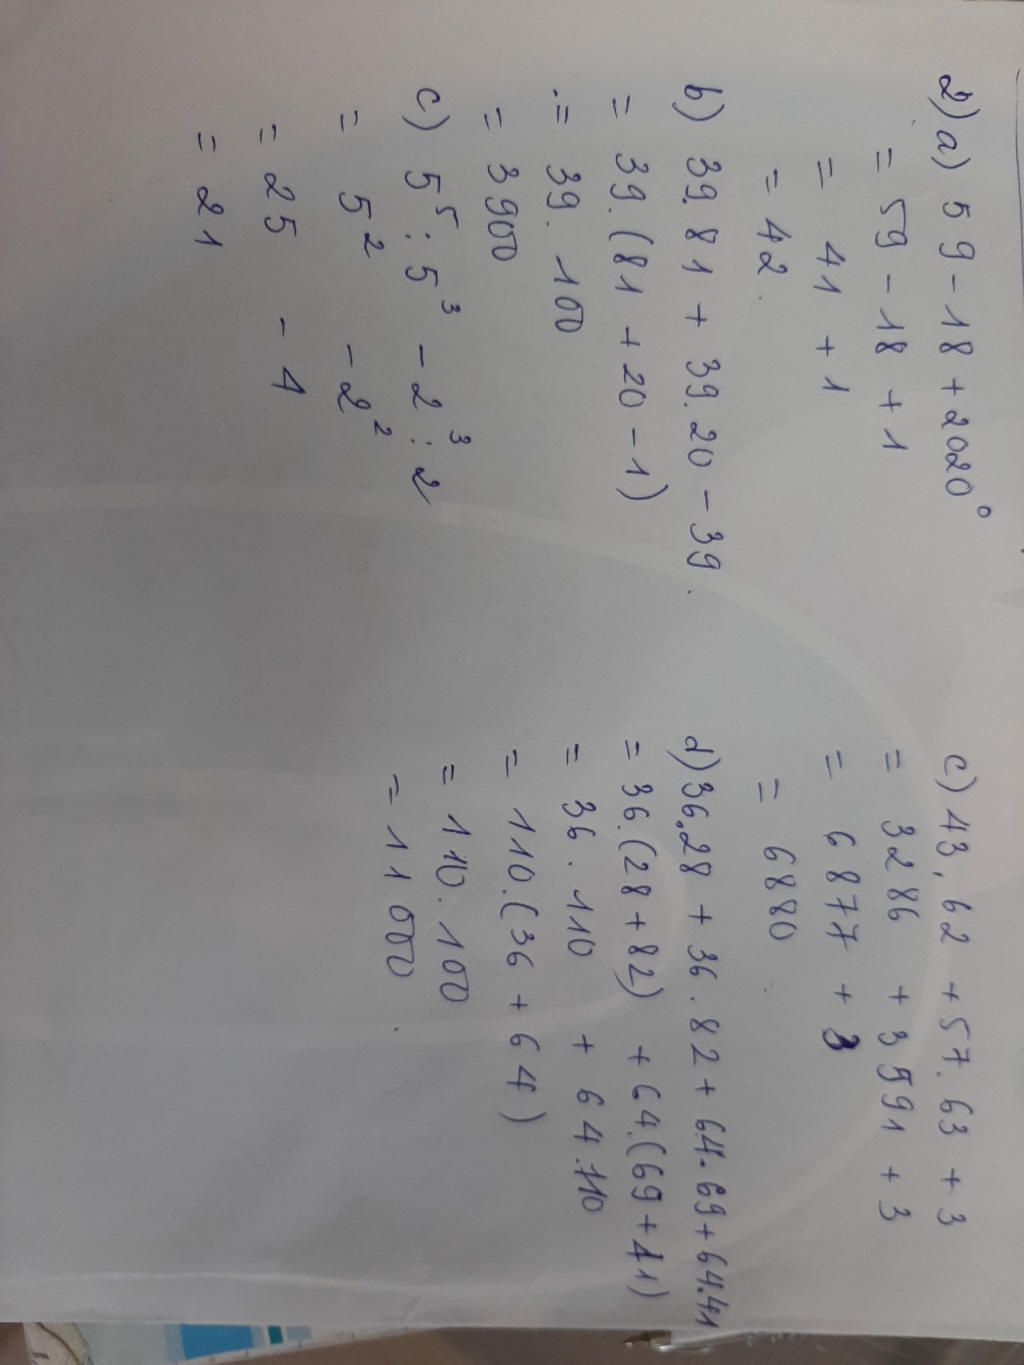 2) a) 59 - 18 + 2020⁰
= 59 - 18 + 1
= 41 + 1
= 42.
b) 39.81 + 39.20 - 39.
= 39.(81 + 20 - 1)
= 39.100
= 3900
c) 5⁵ : 5³ - 2³ : 2
= 5² - 2²
= 25 - 4
= 21
c) 43.62 + 57.63 + 3
= 3286 + 3591 + 3
= 6877 + 3
= 6880
d) 36.28 + 36.82 + 64.69 + 64.41
= 36.(28 + 82) + 64.(69 + 41)
= 36.110 + 64.110
= 110.(36 + 64)
= 110.100
= 11000